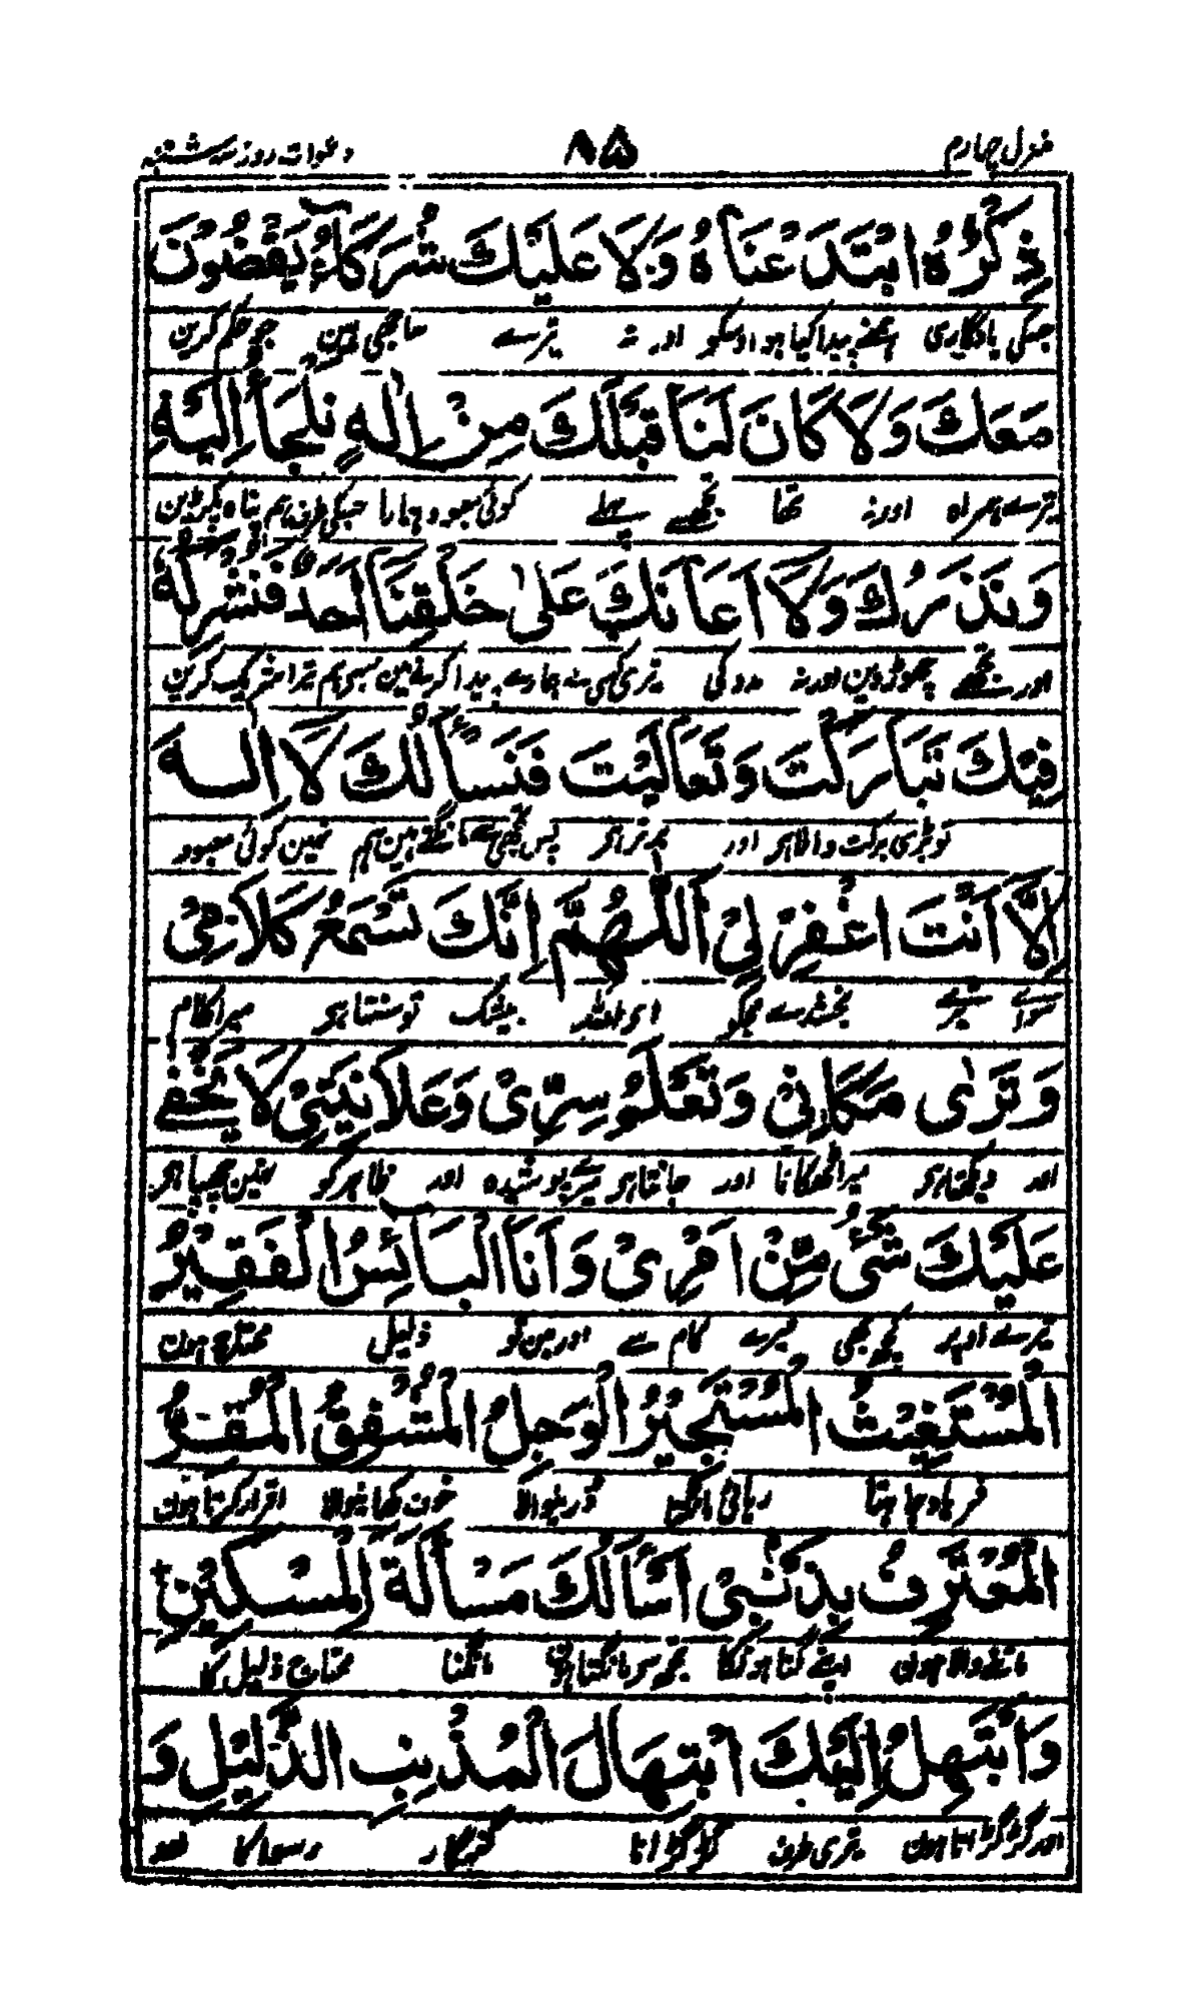 منزل چہارم ۸۵ دعوات روز سہ شنبہ
ذِكْرُهُ ابْتَدَعْنَاهُ وَلَا عَلَيْكَ شُرَكَاءُ يَقْضُوْنَ
جسکی یادگاری ہمنے پیدا کیا ہو اوسکو اور نہ تیرے ساجھی ہین جو حکم کرین
مَعَكَ وَلَا كَانَ لَنَا قَبْلَكَ مِنْ اِلٰهٍ نَلْجَأُ اِلَيْهِ
تیرے ہمراہ اور نہ تھا تجھسے پہلے کوئی معبود ہمارا جسکی طرف ہم پناہ پکڑین
وَنَذَرُكَ وَلَا اَعَانَكَ عَلٰى خَلْقِنَا اَحَدٌ فَنُشْرِكَهٗ
اور تجھے چھوڑ دین اور نہ مدد کی تیری کسی نے ہمارے پیدا کرنے مین سو ہم تیرا شریک کرین
فِيْكَ تَبَارَكْتَ وَتَعَالَيْتَ فَنَسْأَلُكَ لَا اِلٰهَ
تو بڑی برکت والا ہو اور برتر ہو پس تجھی سے مانگتے ہین ہم نہین کوئی معبود
اِلَّا اَنْتَ اغْفِرْ لِيْ اَللّٰهُمَّ اِنَّكَ تَسْمَعُ كَلَامِيْ
سواے تیرے بخشدے مجکو ای اللہ بیشک تو سنتا ہو میرا کلام
وَتَرٰى مَكَانِيْ وَتَعْلَمُ سِرِّيْ وَعَلَانِيَتِيْ لَا يَخْفٰى
اور دیکھتا ہو میرا ٹھکانا اور جانتا ہو میرے پوشیدہ اور ظاہر کو نہین چھپا ہو
عَلَيْكَ شَيْءٌ مِّنْ اَمْرِيْ وَاَنَا الْبَائِسُ الْفَقِيْرُ
تیرے اوپر کچھ بھی میرے کام سے اور مین تو ذلیل محتاج ہون
الْمُسْتَغِيْثُ الْمُسْتَجِيْرُ الْوَجِلُ الْمُشْفِقُ الْمُقِرُّ
فریاد چاہتا رہائی مانگتا ڈرنیوالا خوف کھانیوالا اقرار کرتا ہون
الْمُعْتَرِفُ بِذَنْبِيْ اَسْأَلُكَ مَسْأَلَةَ الْمِسْكِيْنِ
ماننے والا ہون اپنے گناہونکا تجھ سے مانگتا ہون مانگنا محتاج ذلیل کا
وَاَبْتَهِلُ اِلَيْكَ ابْتِهَالَ الْمُذْنِبِ الذَّلِيْلِ وَ
اور گڑگڑاتا ہون تیری طرف گڑگڑانا گنہگار رسوا کا اور